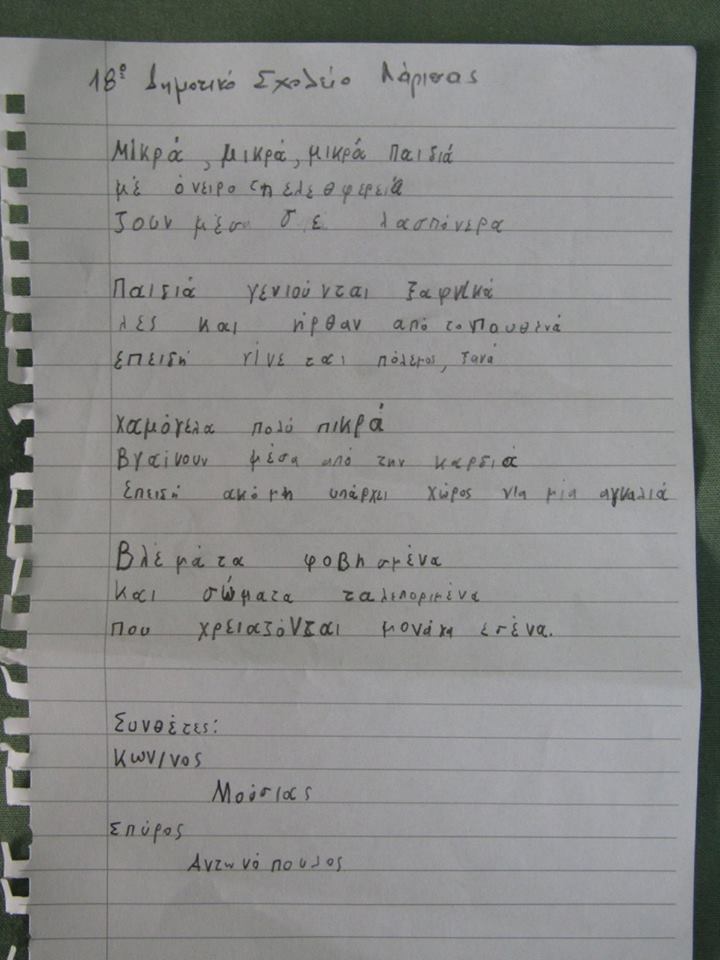 18º Δημοτικό Σχολείο Λάρισας
Μικρά, μικρά, μικρά παιδιά
μέ όνειρο τη ελεθφερειά
ζουν μέσα σ ε λασπόνερα
Παιδιά γενιούνται ξαφνικά
λες και ήρθαν από το πουθενά
επειδή γίνεται πόλεμος, ξανά
Χαμόγελα πολύ πικρά
Βγαίνουν μέσα από την καρδιά
Επειδή ακόμη υπάρχει χώρος για μία αγκαλιά
Βλέματα φοβησμένα
Και σώματα ταλεποριμένα
που χρειαζόνται μονάχα εσένα.
Συνθέτες:
Κων/νος
Μούσιας
Σπύρος
Αντωνόπουλος